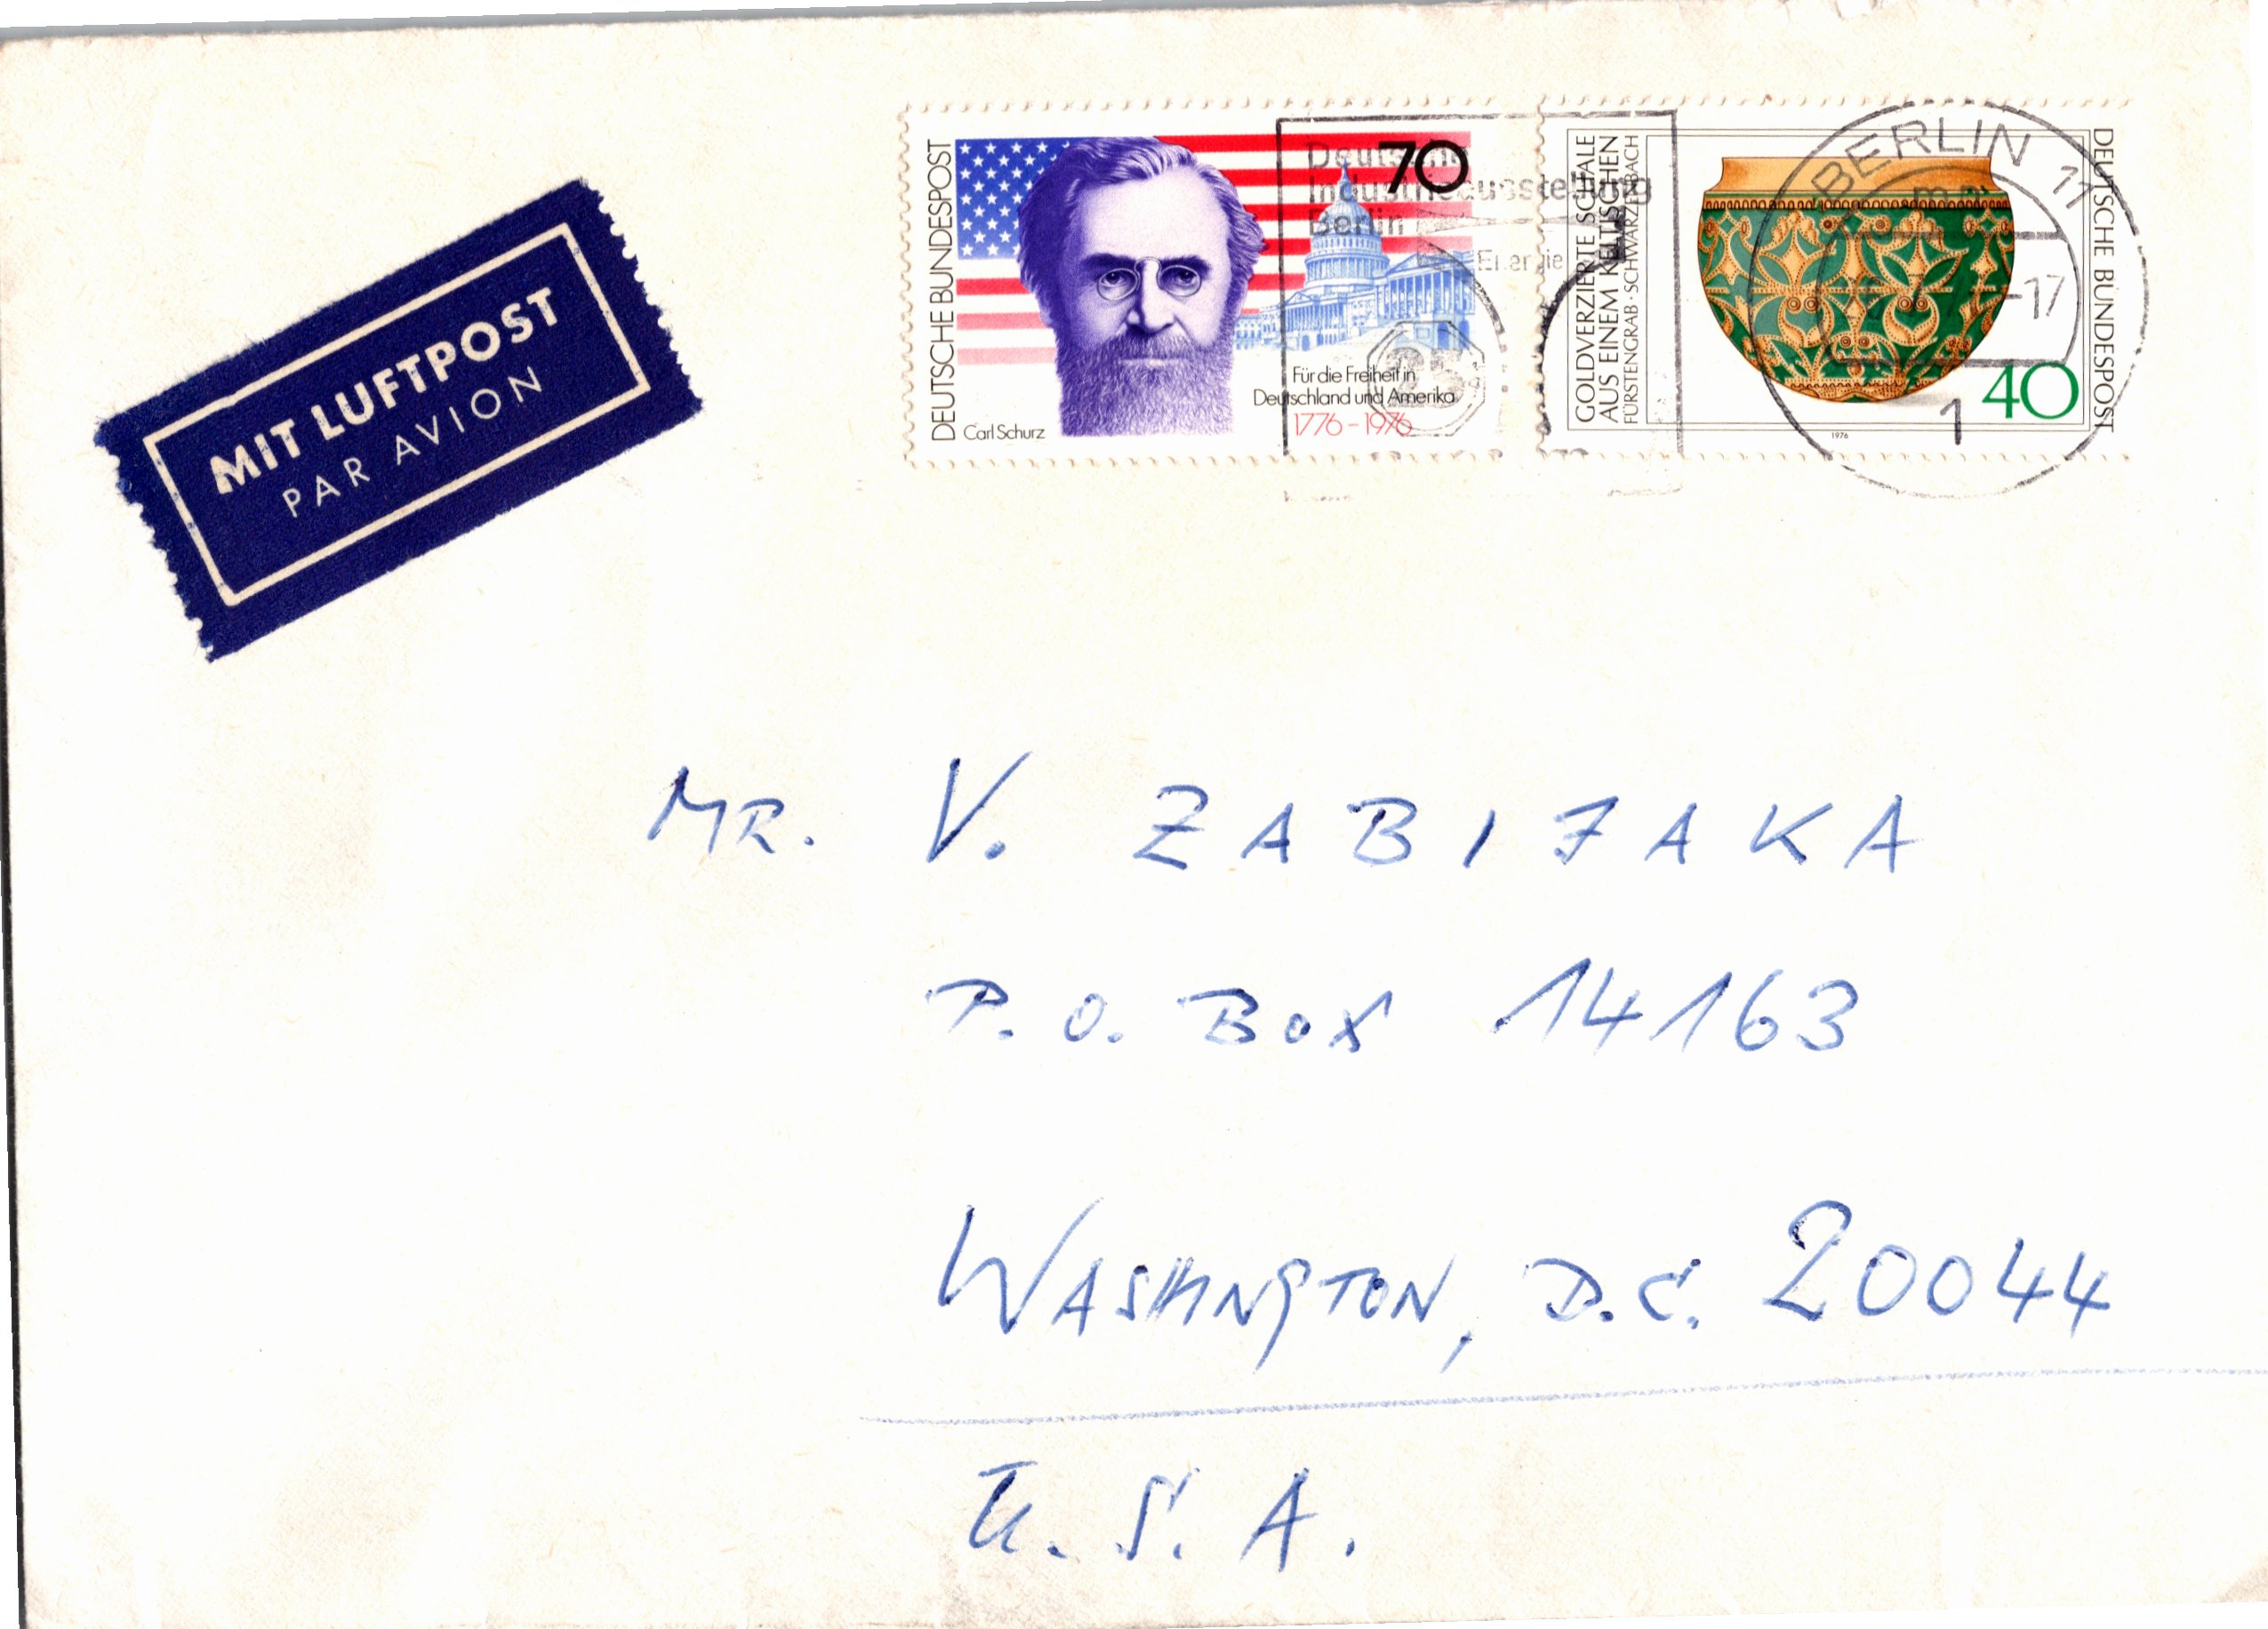 MIT LUFTPOST
PAR AVION
DEUTSCHE BUNDESPOST
70
Carl Schurz
Für die Freiheit in
Deutschland und Amerika
1776-1976
Deutsche
Industrieausstellung
Berlin
Energie
25
GOLDVERZIERTE SCHALE
AUS EINEM KELTISCHEN
FÜRSTENGRAB · SCHWARZENBACH
1976
40
DEUTSCHE BUNDESPOST
BERLIN 11
-17
1
MR. V. ZABIJAKA
P.O. BOX 14163
WASHINGTON, D.C. 20044
U.S.A.